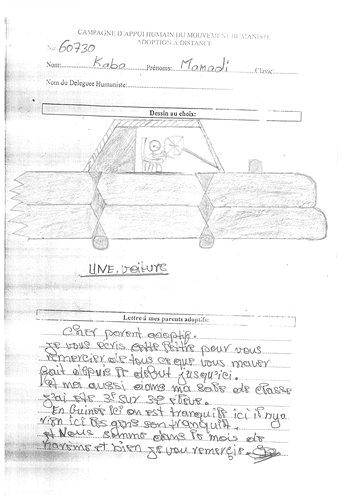 CAMPAGNE D'APPUI HUMAIN DU MOUVEMENT HUMANISTE
ADOPTION A DISTANCE
No 60730
Nom: Kaba Prénoms: Mamadi Classe
Nom du Deleguee Humaniste:
Dessin au choix:
UNE voiture
Lettre à mes parents adoptifs:
Cher parent adoptif.
Je vous ecris cette lettre pour vous
remercier de tous ce que vous maver
fait depuis le debut jusqu'ici.
et moi aussi dans ma salle de classe
j'ai été 3e sur 32 eleve.
En Guinée ici on est tranquille ici il nya
rien ici les gens son tranquille.
et Nous somme dans le mois de
karème et bien je vou remerçie.